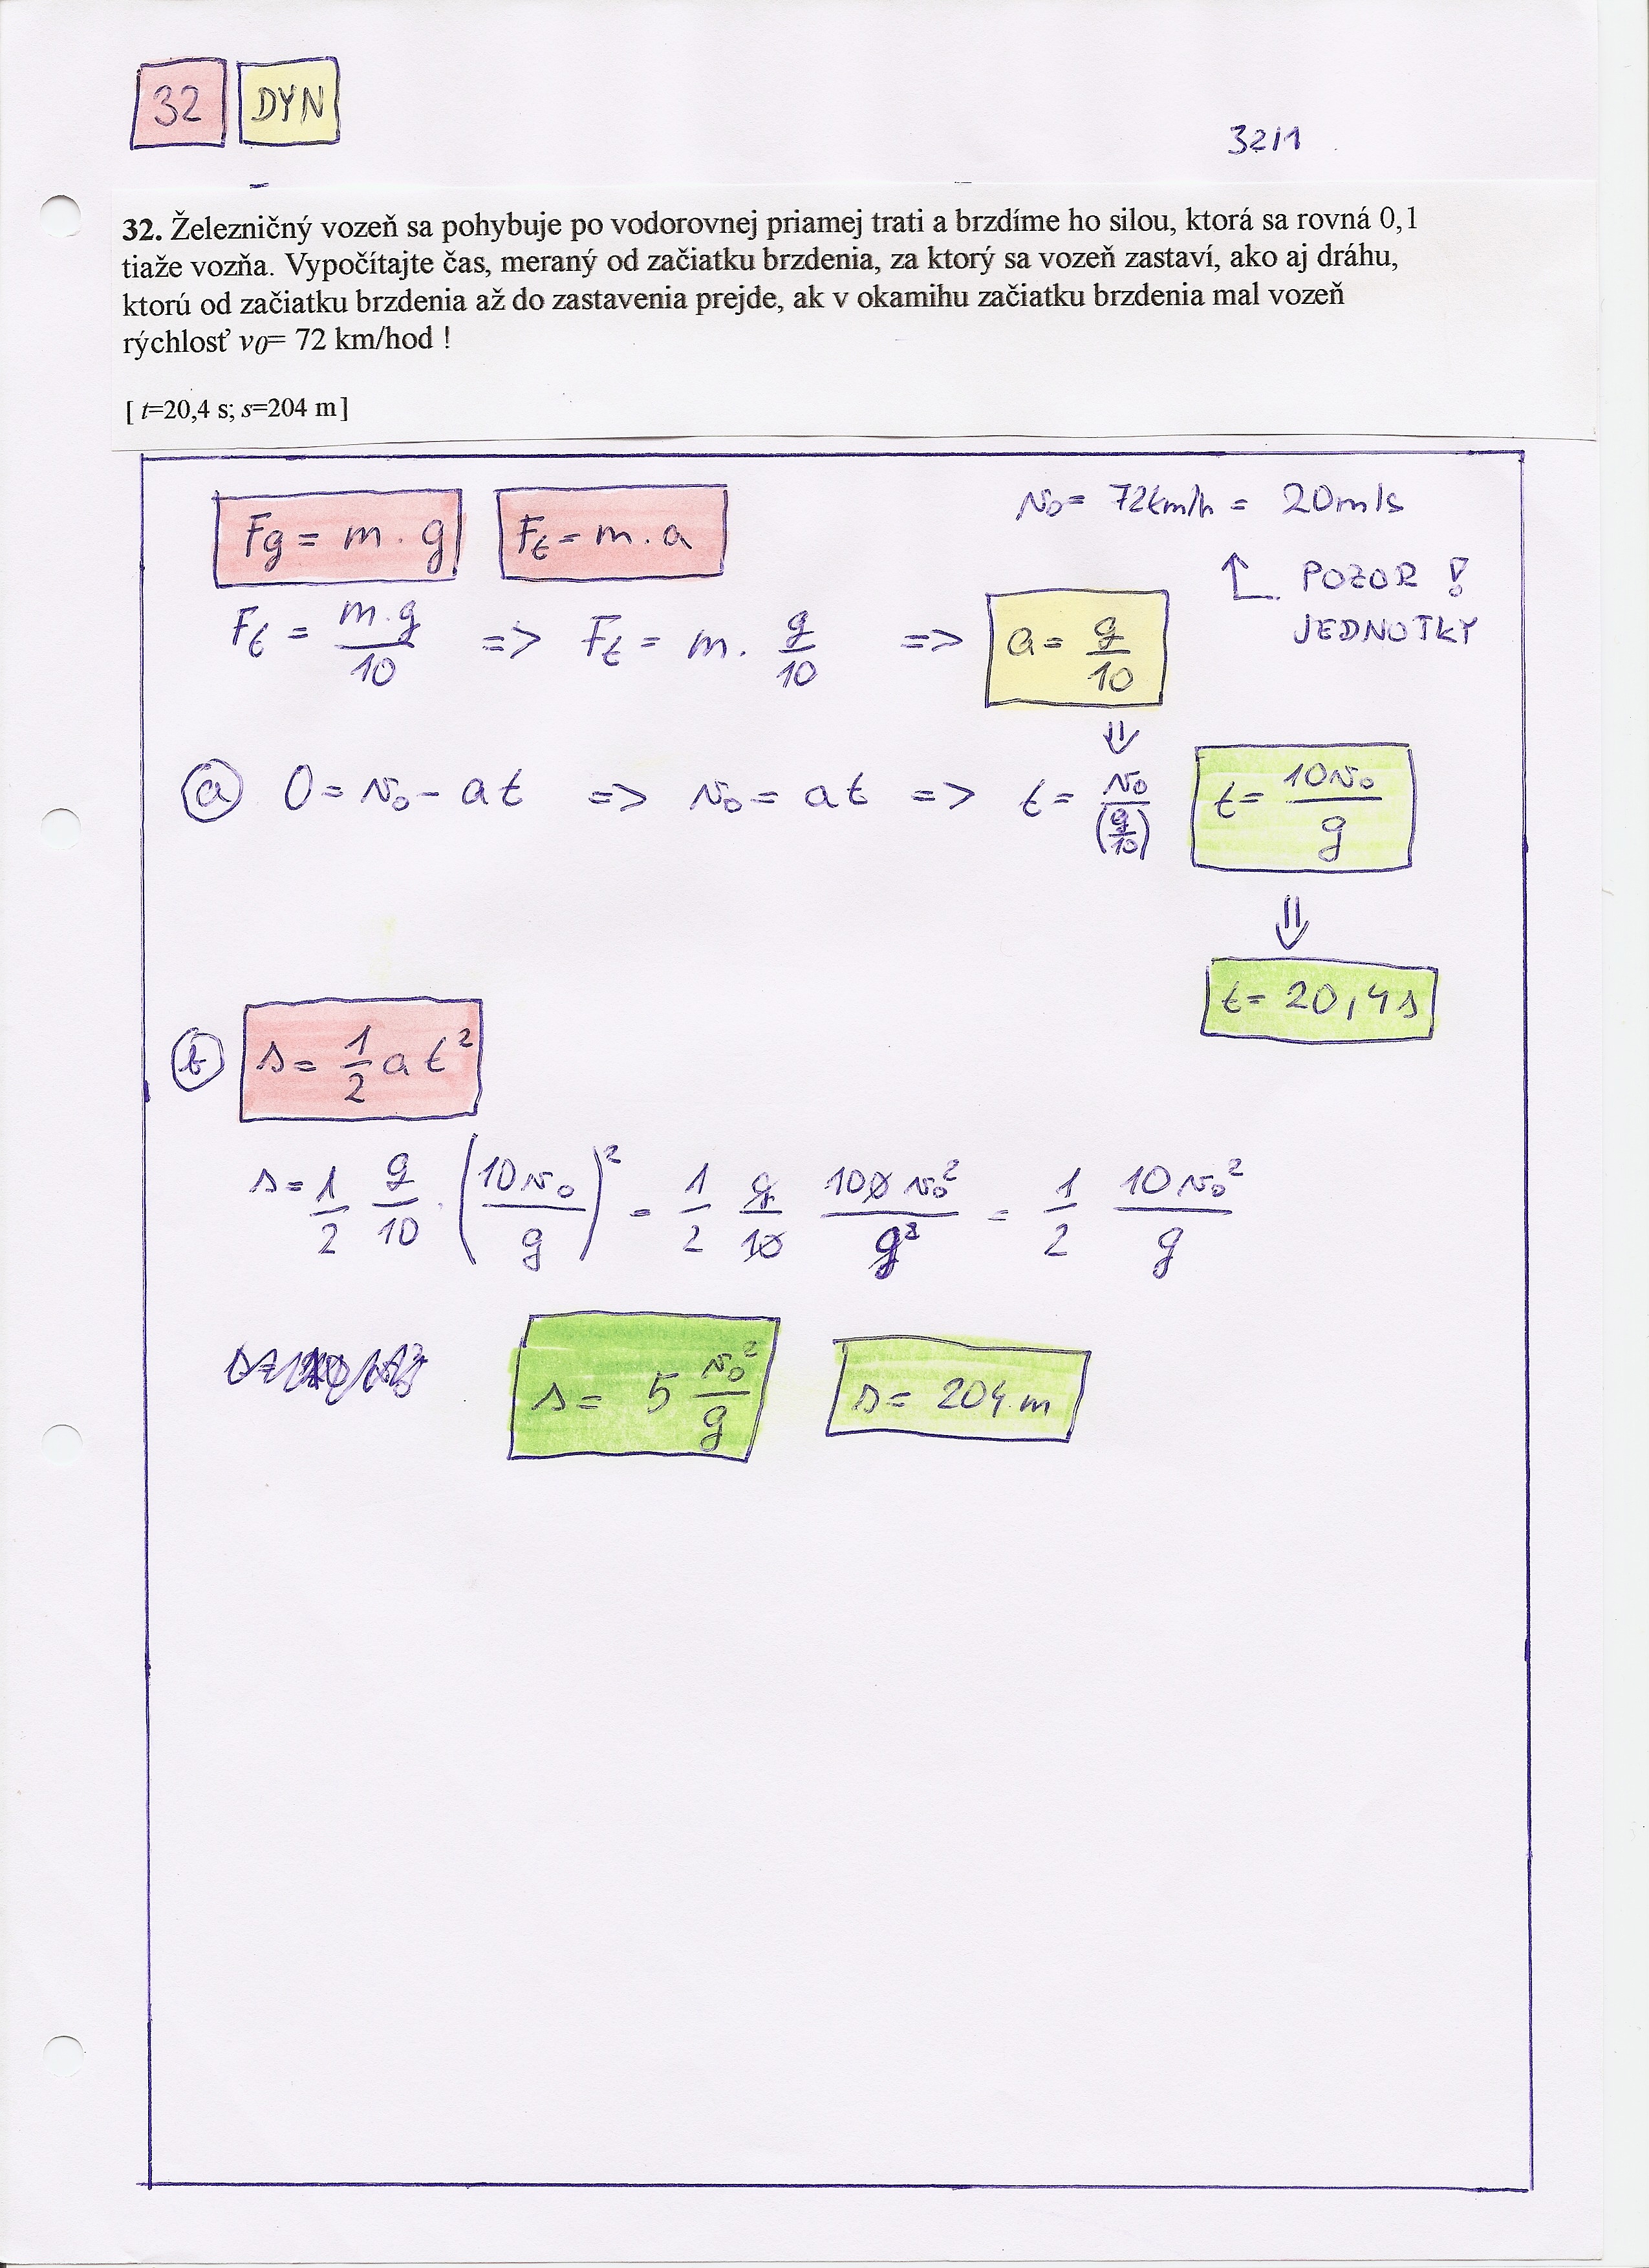 32 DYN
32/1
32. Železničný vozeň sa pohybuje po vodorovnej priamej trati a brzdíme ho silou, ktorá sa rovná 0,1
tiaže vozňa. Vypočítajte čas, meraný od začiatku brzdenia, za ktorý sa vozeň zastaví, ako aj dráhu,
ktorú od začiatku brzdenia až do zastavenia prejde, ak v okamihu začiatku brzdenia mal vozeň
rýchlosť v0= 72 km/hod !
[ t=20,4 s; s=204 m]
Fg = m . g Ft = m . a v₀ = 72km/h = 20m/s
↑ POZOR !
JEDNOTKY
Ft = m.g/10 => Ft = m . g/10 => a = g/10
⇓
a 0 = v₀ - at => v₀ = at => t = v₀/(g/10) t = 10v₀/g
⇓
t = 20,4s
b s = 1/2 a t²
s = 1/2 g/10 . (10v₀/g)² = 1/2 g/10 100v₀²/g² = 1/2 10v₀²/g
s = 5 v₀²/g s = 204 m